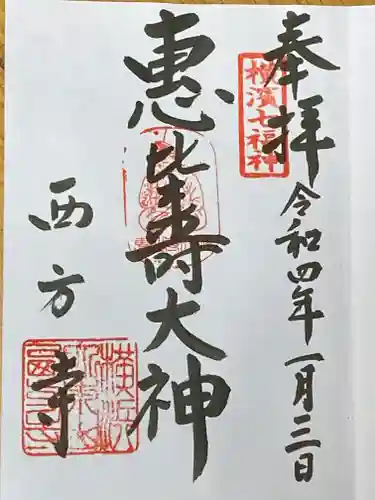 奉拝
横濱七福神
令和四年一月三日
恵比寿大神
西方寺